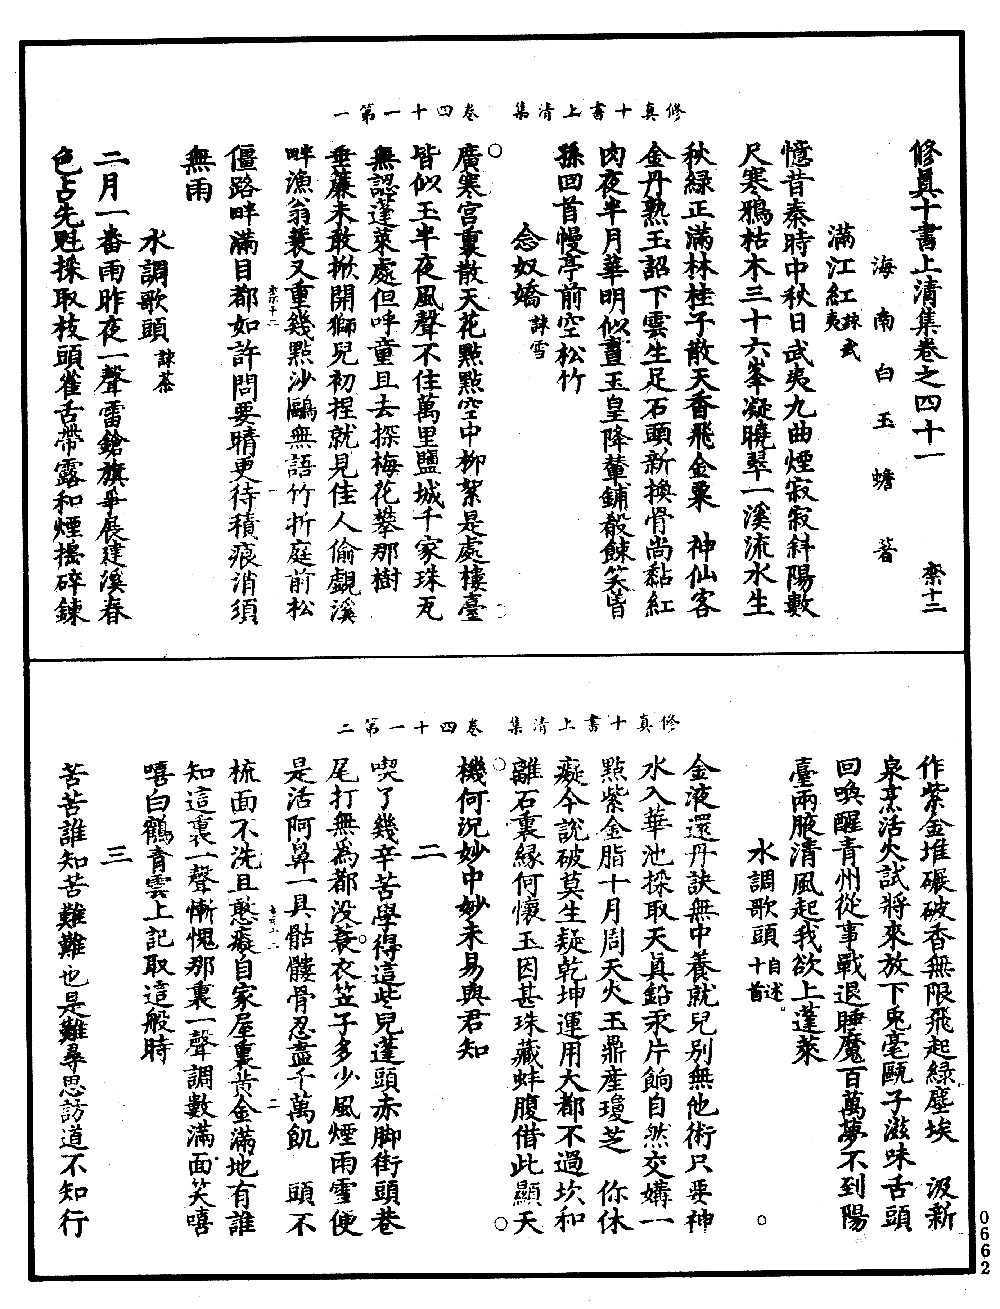 修真十書上清集　卷四十一第一
修眞十書上清集卷之四十一　柰十二
海南白玉蟾著
滿江紅 詠武夷
憶昔秦時中秋日武夷九曲煙寂寂斜陽數
尺寒鴉枯木三十六峯凝曉翠一溪流水生
秋綠正滿林桂子散天香飛金粟　神仙客
金丹熟玉詔下雲生足石頭新換骨尚黏紅
肉夜半月華明似晝玉皇降輦鋪殽餗笑皆
孫回首慢亭前空松竹
念奴嬌 詠雪
廣寒宮裏散天花點點空中柳絮是處樓臺
皆似玉半夜風聲不住萬里鹽城千家珠瓦
無認蓬萊處但呼童且去探梅花攀那樹
垂簾未敢掀開獅兒初捏就見佳人偷覷溪
畔漁翁簑又重幾點沙鷗無語竹折庭前松
僵路畔滿目都如許問要晴更待積痕消須
無雨
水調歌頭 詠茶
二月一番雨昨夜一聲雷鎗旗爭展建溪春
色占先魁採取枝頭雀舌帶露和煙搗碎鍊
修真十書上清集　卷四十一第二
作紫金堆碾破香無限飛起綠塵埃　汲新
泉烹活火試將來放下兎毫甌子滋味舌頭
回喚醒青州從事戰退睡魔百萬夢不到陽
臺兩腋清風起我欲上蓬萊
水調歌頭 自述十首
金液還丹訣無中養就兒別無他術只要神
水入華池採取天眞鉛汞片餉自然交媾一
點紫金脂十月周天火玉鼎產瓊芝　你休
癡今說破莫生疑乾坤運用大都不過坎和
離石裏緣何懷玉因甚珠藏蚌腹借此顯天
機何況妙中妙未易與君知
二
喫了幾辛苦學得這些兒蓬頭赤脚街頭巷
尾打無為都没蓑衣笠子多少風煙雨雪便
是活阿鼻一具骷髏骨忍盡千萬飢　頭不
梳面不洗且憨癡自家屋裏黄金滿地有誰
知這裏一聲慚愧那裏一聲調數滿面笑嘻
嘻白鶴青雲上記取這般時
三
苦苦誰知苦難難也是難尋思訪道不知行
0662